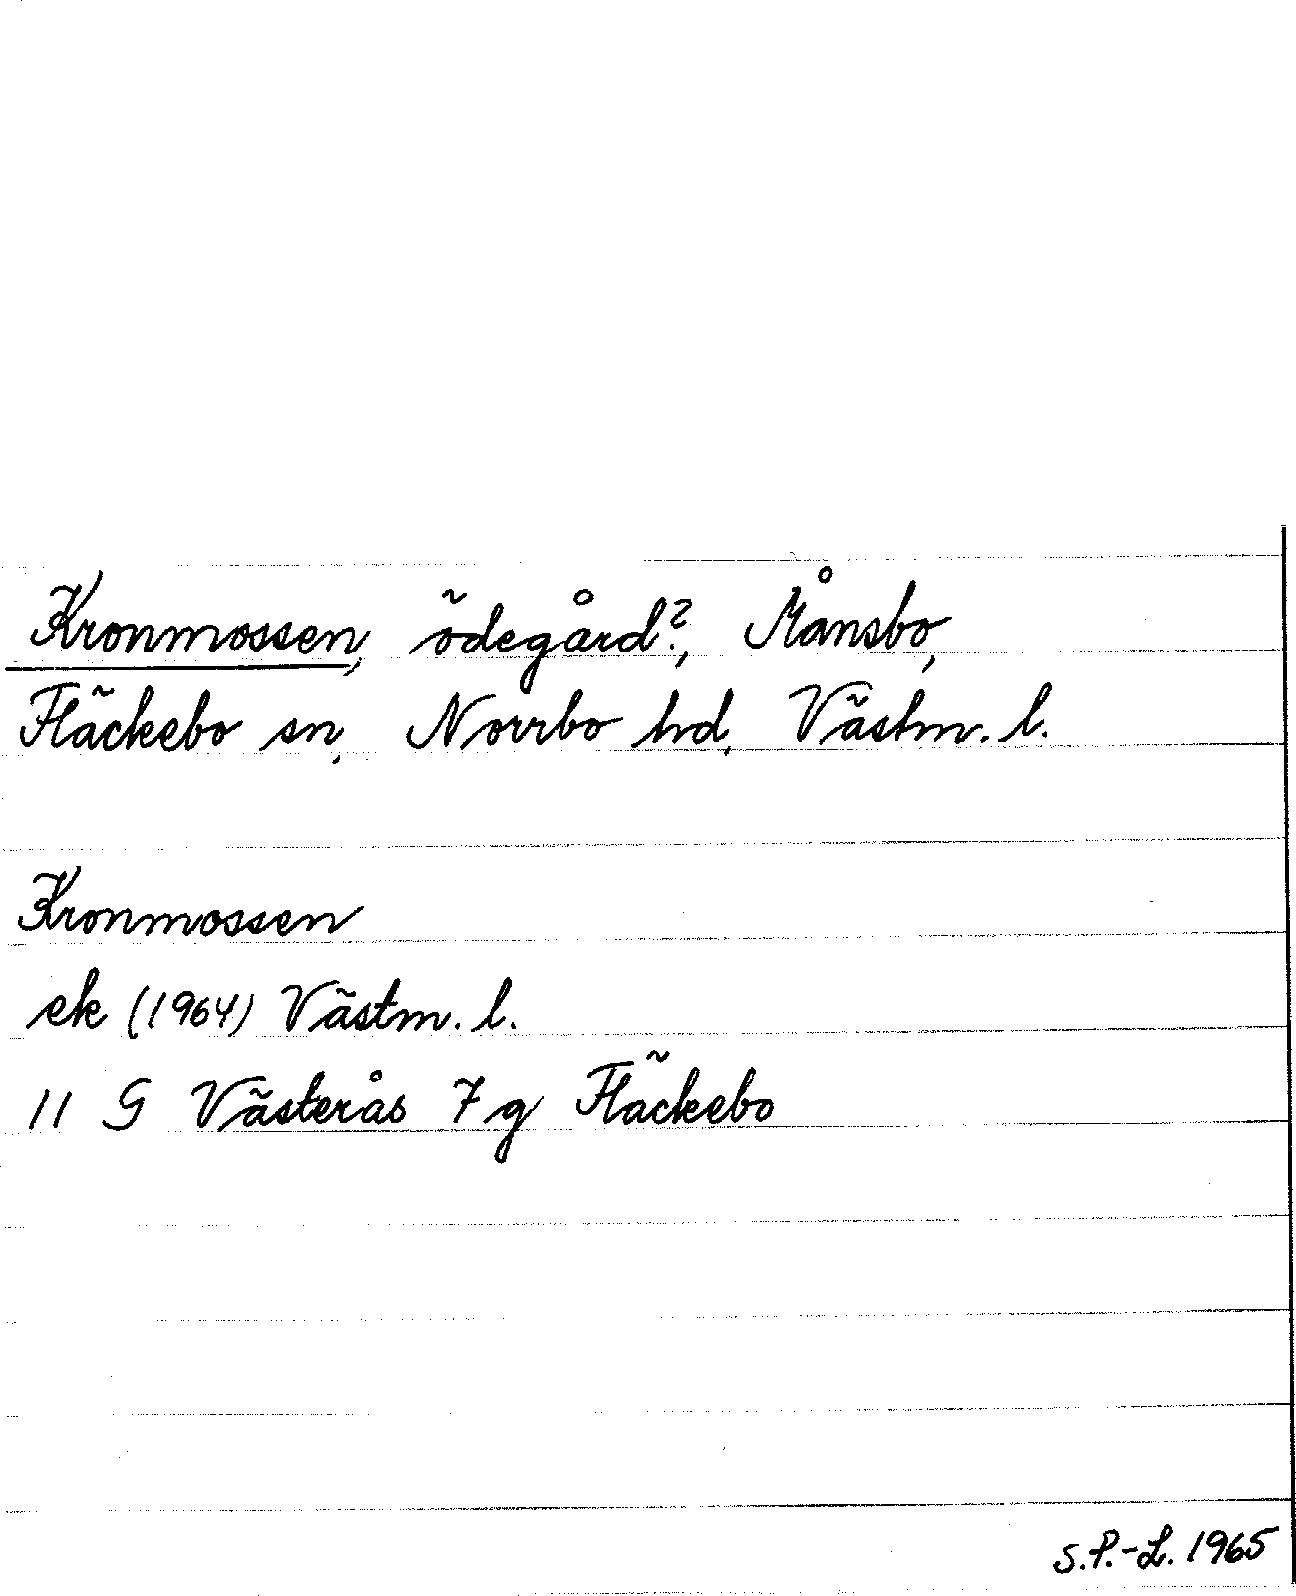 Kronmossen, ödegård?, Månsbo,
Fläckebo sn, Norrbo hd, Västm. l.
Kronmossen
ek (1964) Västm. l.
11 G Västerås 7 g Fläckebo
S.P.-L. 1965